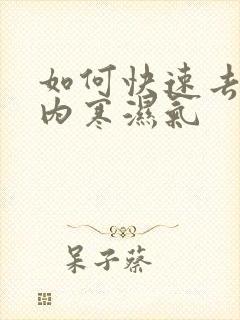 如何快速去
内寒濕氣
呆子蔡